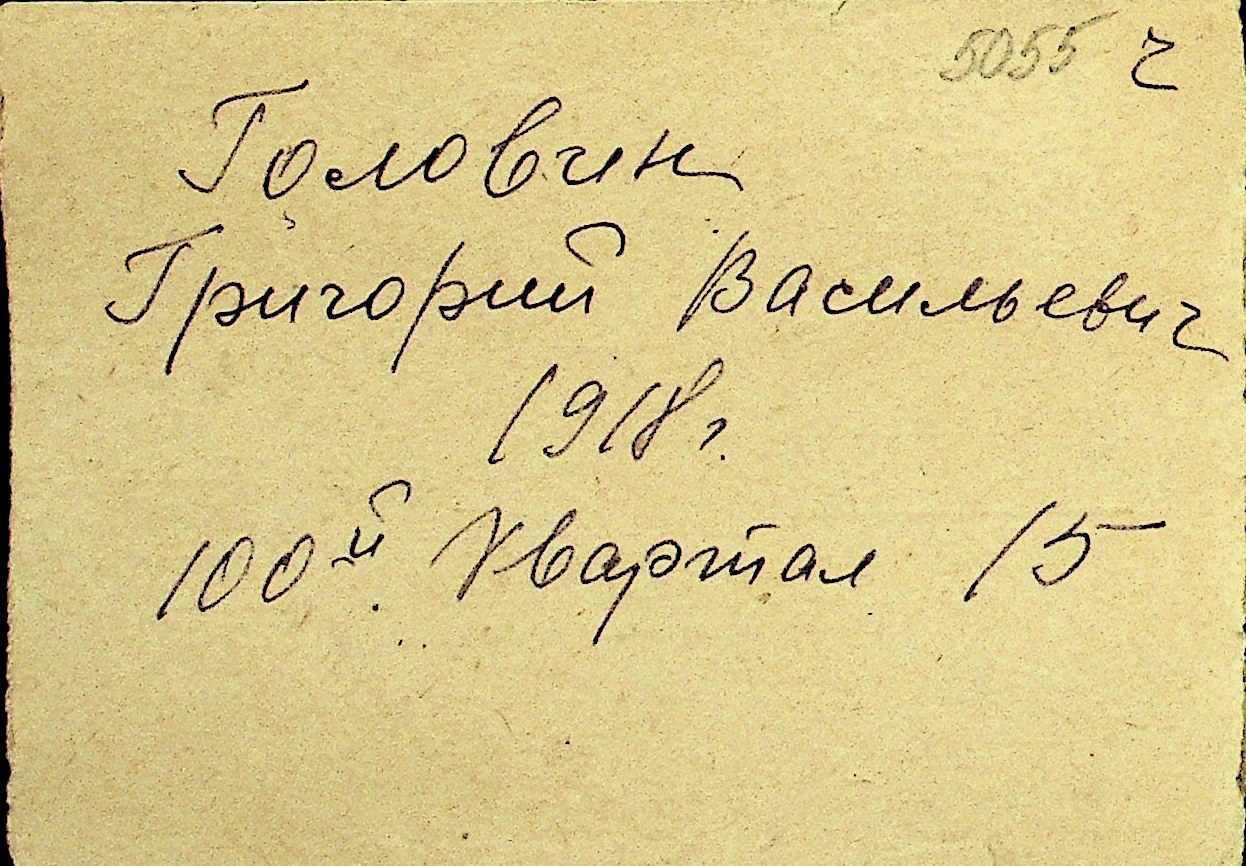 5055 ч
Головин
Григорий Васильевич
1918 г.
100й квартал 15